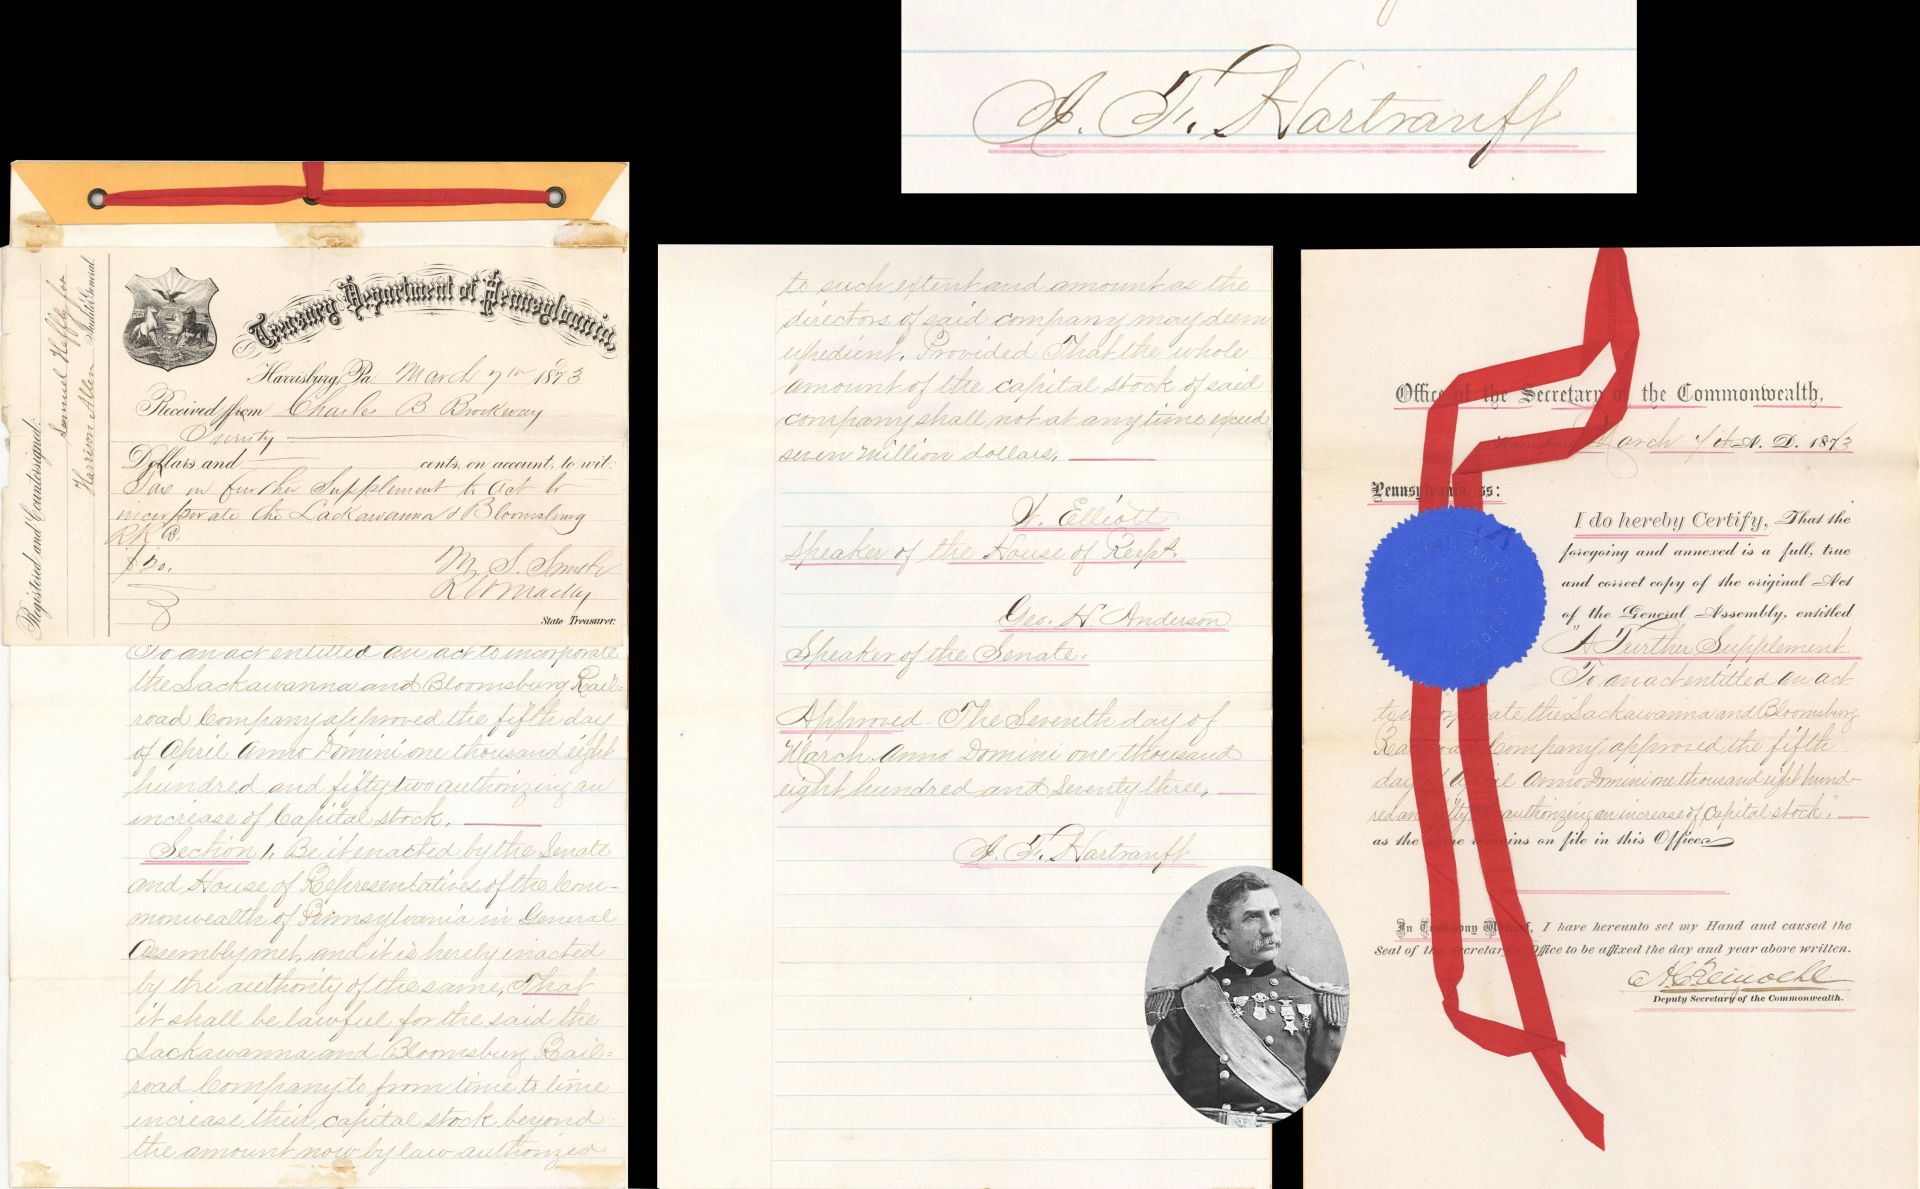 J. F. Hartranft
Registered and Countersigned:
Lemuel Heffly for
Harrison Allen Auditor General
Treasury Department of Pennsylvania,
Harrisburg, Pa. March 7th 1873
Received from Charles B Brockway
Twenty
Dollars and cents, on account, to wit:
Tax on further Supplement to Act to
incorporate the Lackawanna & Bloomsburg
R R Co.
$20.
State Treasurer.
To an act entitled an act to incorporate
the Lackawanna and Bloomsburg Rail=
road Company approved the fifth day
of April Anno Domini one thousand eight
hundred and fifty two authorizing an
increase of Capital stock.
Section 1. Be it enacted by the Senate
and House of Representatives of the Com-
monwealth of Pennsylvania in General
Assembly met, and it is hereby enacted
by the authority of the same, That
it shall be lawful for the said the
Lackawanna and Bloomsburg Rail=
road Company to from time to time
increase their capital stock beyond
the amount now by law authorized
to such extent and amount as the
directors of said company may deem
expedient. Provided That the whole
amount of the capital stock of said
company shall not at any time exceed
seven million dollars.
W. Elliott
Speaker of the House of Rep't.
Geo. H. Anderson
Speaker of the Senate.
Approved - The Seventh day of
March Anno Domini one thousand
eight hundred and seventy three.
J. F. Hartranft
Office of the Secretary of the Commonwealth,
Harrisburg March 7th A. D. 1873
Pennsylvania, ss:
I do hereby Certify, That the
foregoing and annexed is a full, true
and correct copy of the original Act
of the General Assembly, entitled
"A Further Supplement
To an act entitled an act
to incorporate the Lackawanna and Bloomsburg
Railroad Company approved the fifth
day of April Anno Domini one thousand eight hund-
red and fifty two authorizing an increase of Capital stock."
as the same remains on file in this Office.
In Testimony Whereof, I have hereunto set my Hand and caused the
Seal of the Secretary's Office to be affixed the day and year above written.
Deputy Secretary of the Commonwealth.